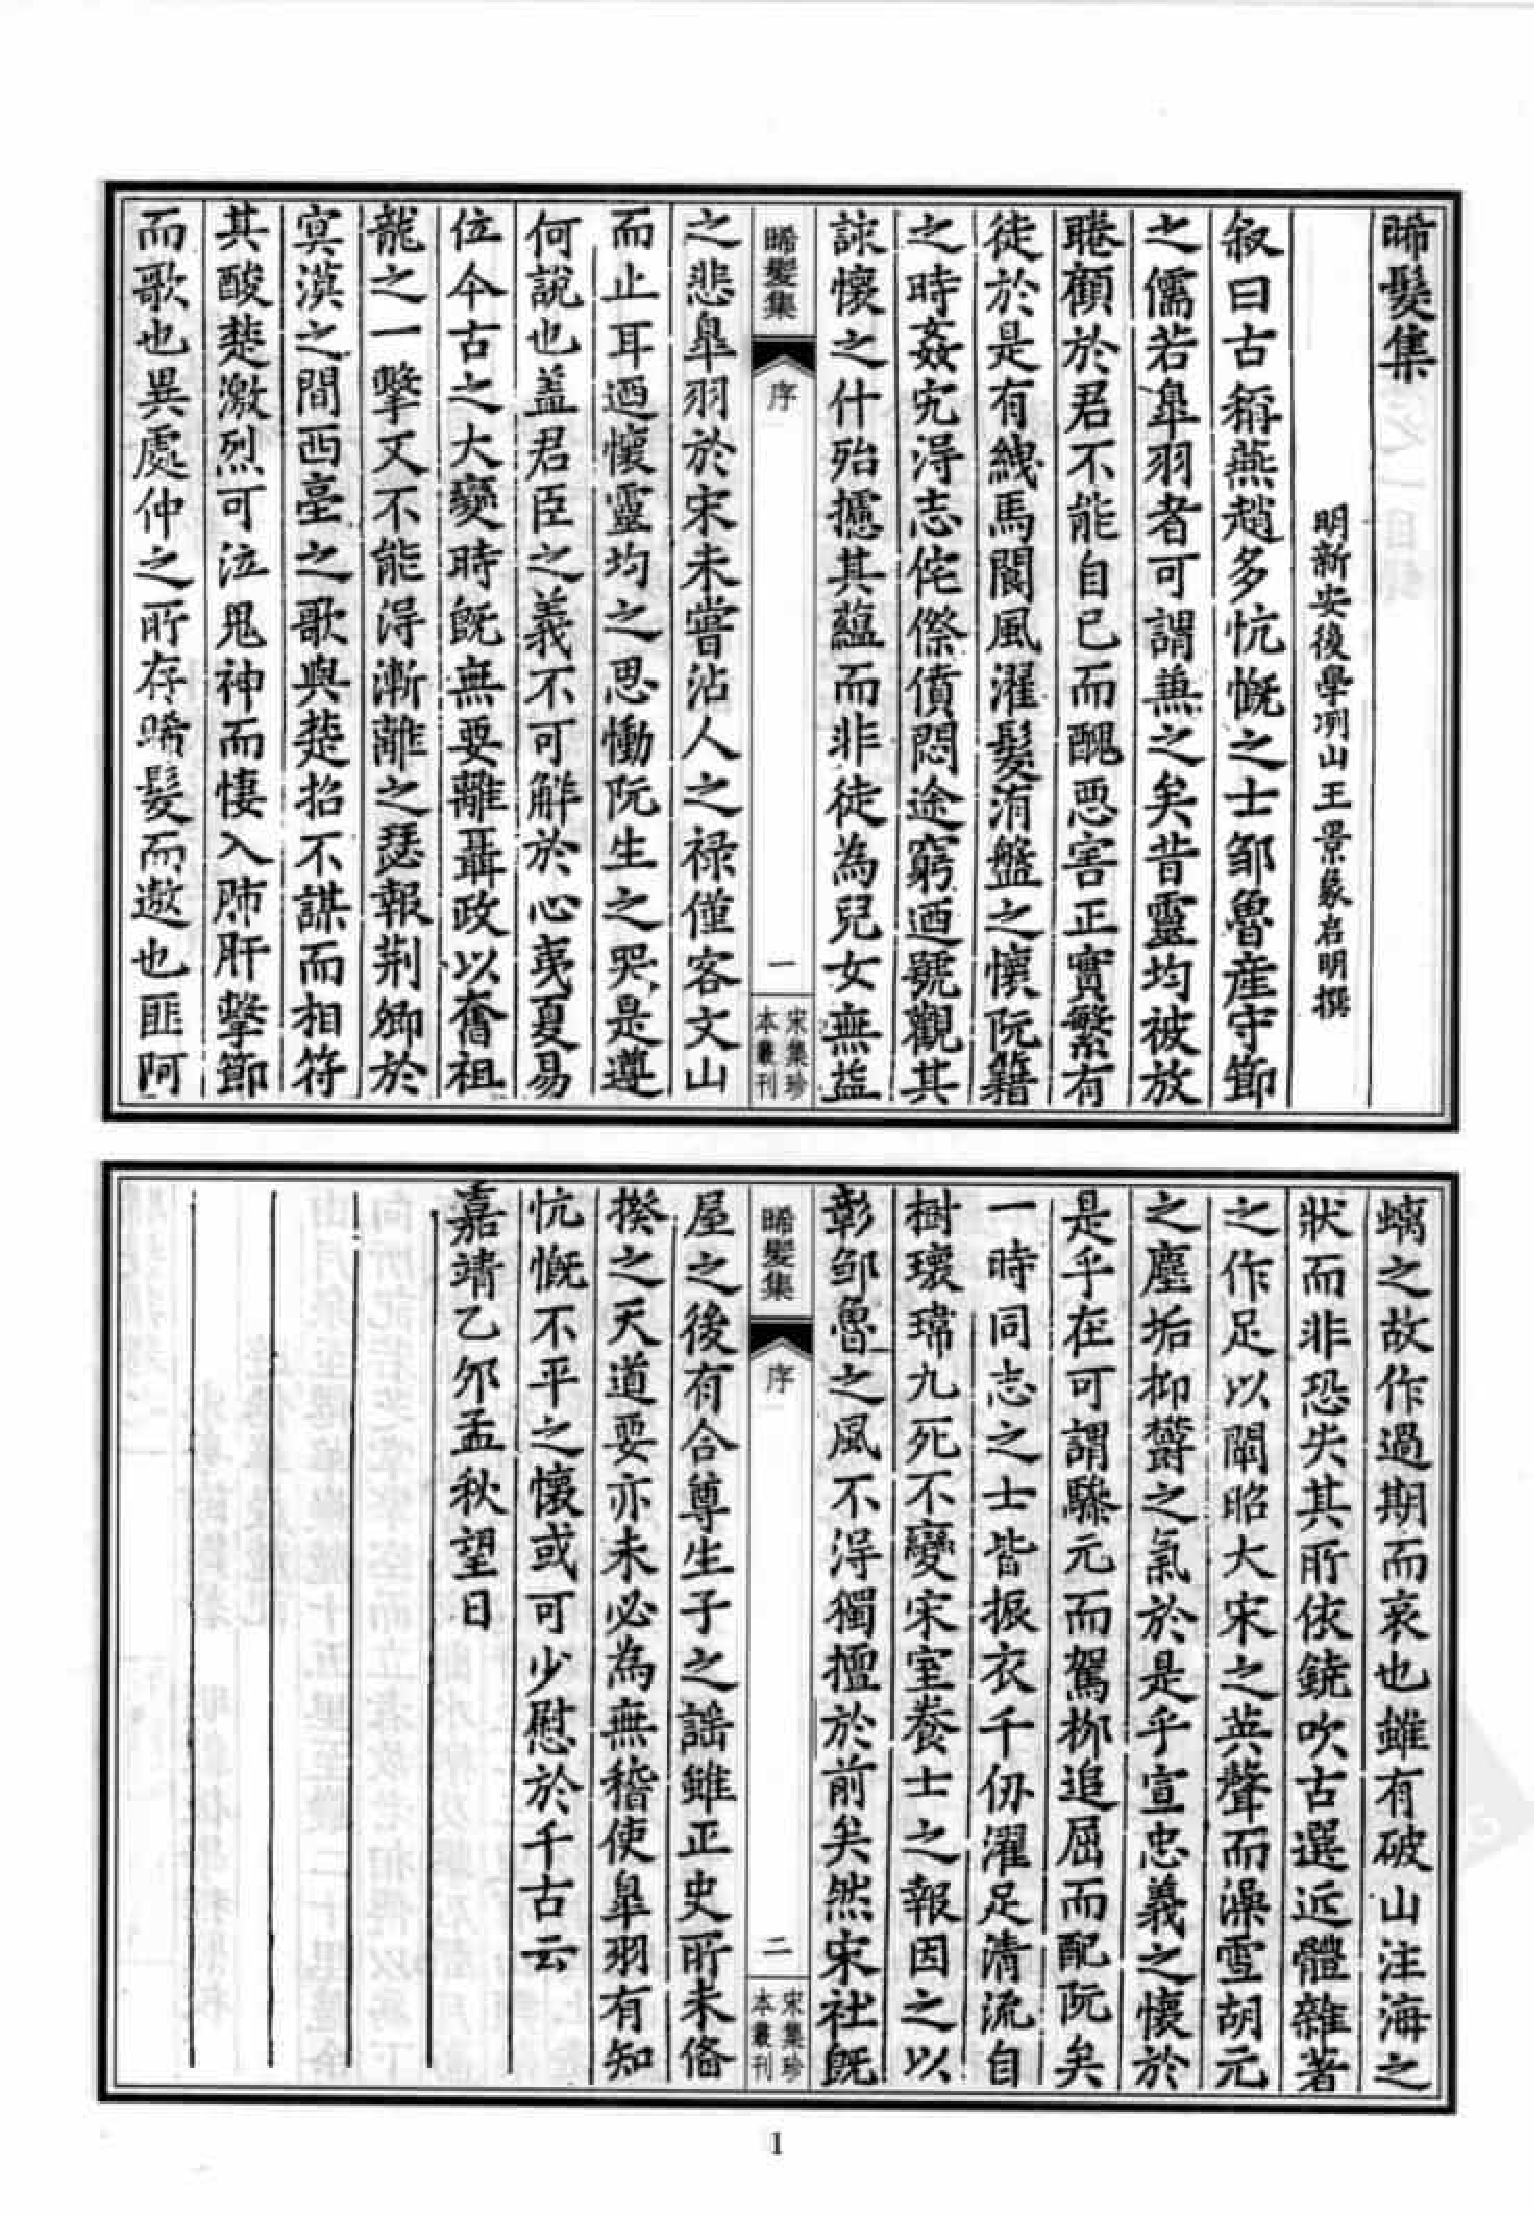 晞髮集
明新安後學冽山王景象启明撰
叙曰古稱燕趙多忼慨之士邹魯産守節
之儒若皐羽者可謂兼之矣昔靈均被放
睠顧於君不能自已而醜惡害正實繁有
徒於是有緤馬閬風濯髮洧盤之懷阮籍
之時姦宄得志侘傺僨悶途窮迺號觀其
詠懷之什殆攄其蘊而非徒為兒女無益
晞髮集
序
一
宋集珍
本叢刊
之悲皐羽於宋未嘗沾人之禄僅客文山
而止耳迺懷靈均之思慟阮生之哭是遵
何說也盖君臣之義不可解於心夷夏易
位今古之大變時既無要離聶政以奮祖
龍之一擊又不能得漸離之瑟報荆卿於
冥漠之間西臺之歌與楚招不謀而相符
其酸楚激烈可泣鬼神而悽入肺肝擊節
而歌也異處仲之所存晞髮而遨也匪阿
螭之故作過期而哀也雖有破山注海之
狀而非恐失其所依鐃吹古選近體雜著
之作足以闡昭大宋之英聲而澡雪胡元
之塵垢抑欝之氣於是乎宣忠義之懷於
是乎在可謂驂元而駕柳追屈而配阮矣
一時同志之士皆振衣千仞濯足清流自
樹瓌瑋九死不變宋室養士之報因之以
彰邹魯之風不得獨擅於前矣然宋社既
晞髮集
序
二
宋集珍
本叢刊
屋之後有合尊生子之謡雖正史所未俻
揆之天道要亦未必為無稽使皐羽有知
忼慨不平之懷或可少慰於千古云
嘉靖乙夘孟秋望日
1